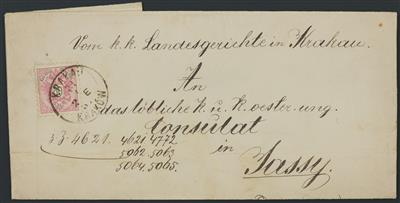 Vom k. k. Landesgerichte in Krakau.
An
das löbliche k. u. k. oester. ung.
Consulat
in
Jassy.
KRAKAU
KRAKÓW
53-4621.
4621. 4772
5062. 5063
5064. 5065.